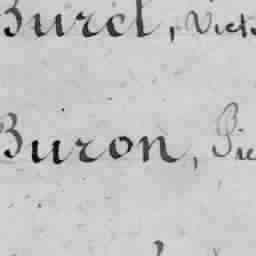 Burel, Vict
Buron, Pie